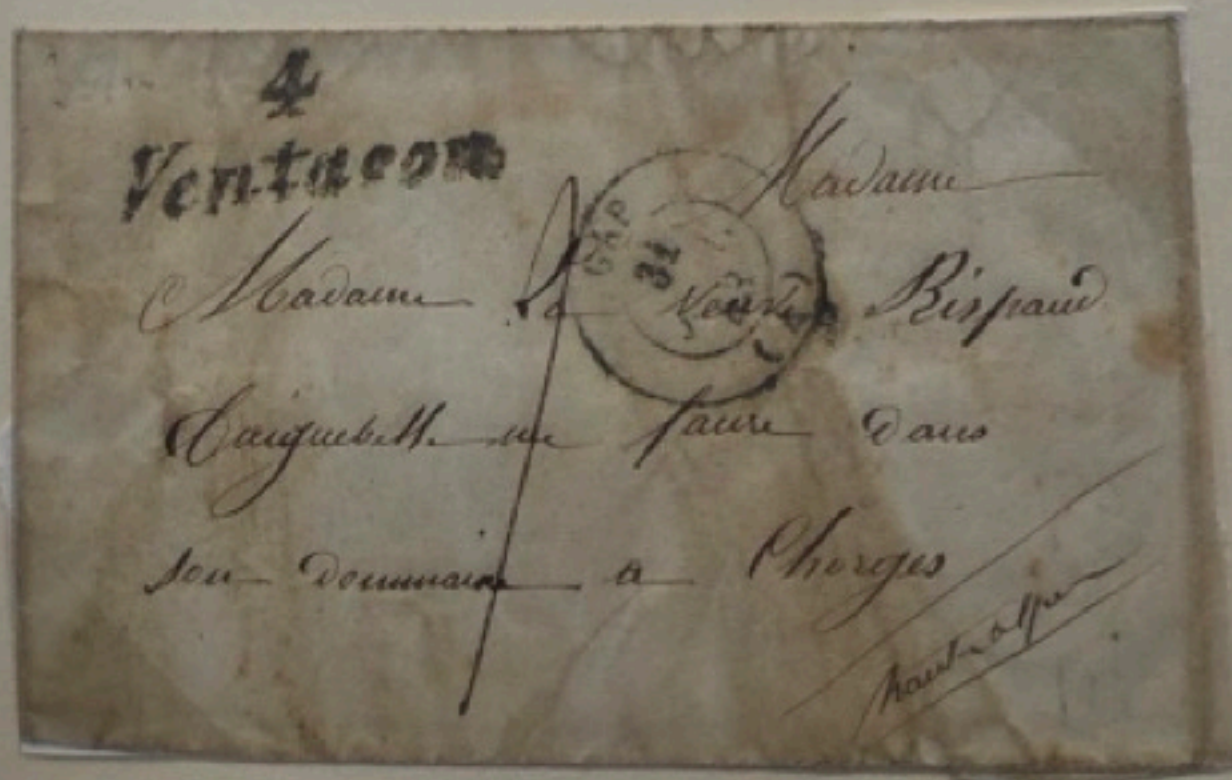 4
Ventacon
GAP
31
(4)
Madame
Madame La Veuve Rispaud
Daiguebelle née faure dans
son dommaine a Chorges
hautes alpes